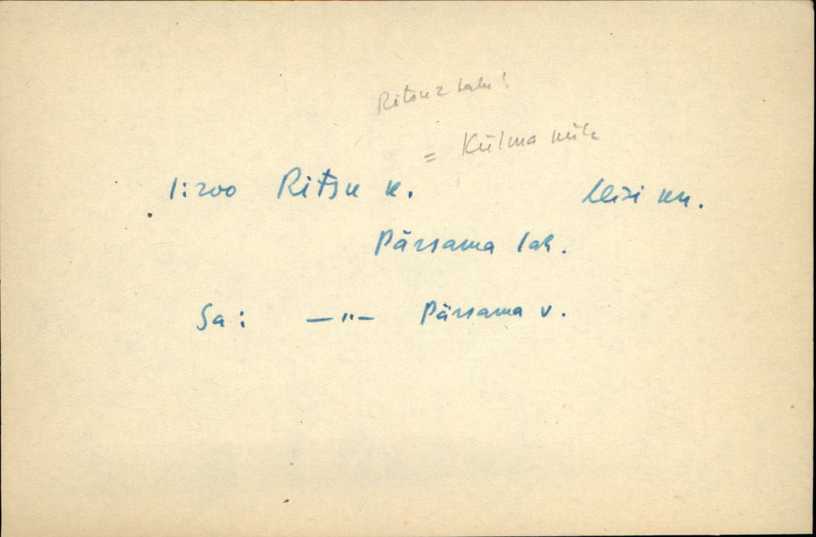 Ritsu 2 lahk!
= Külma küla
1:200 Ritsu k. Leisi kn.
Pärsama lah.
Sa: —"— Pärsama v.